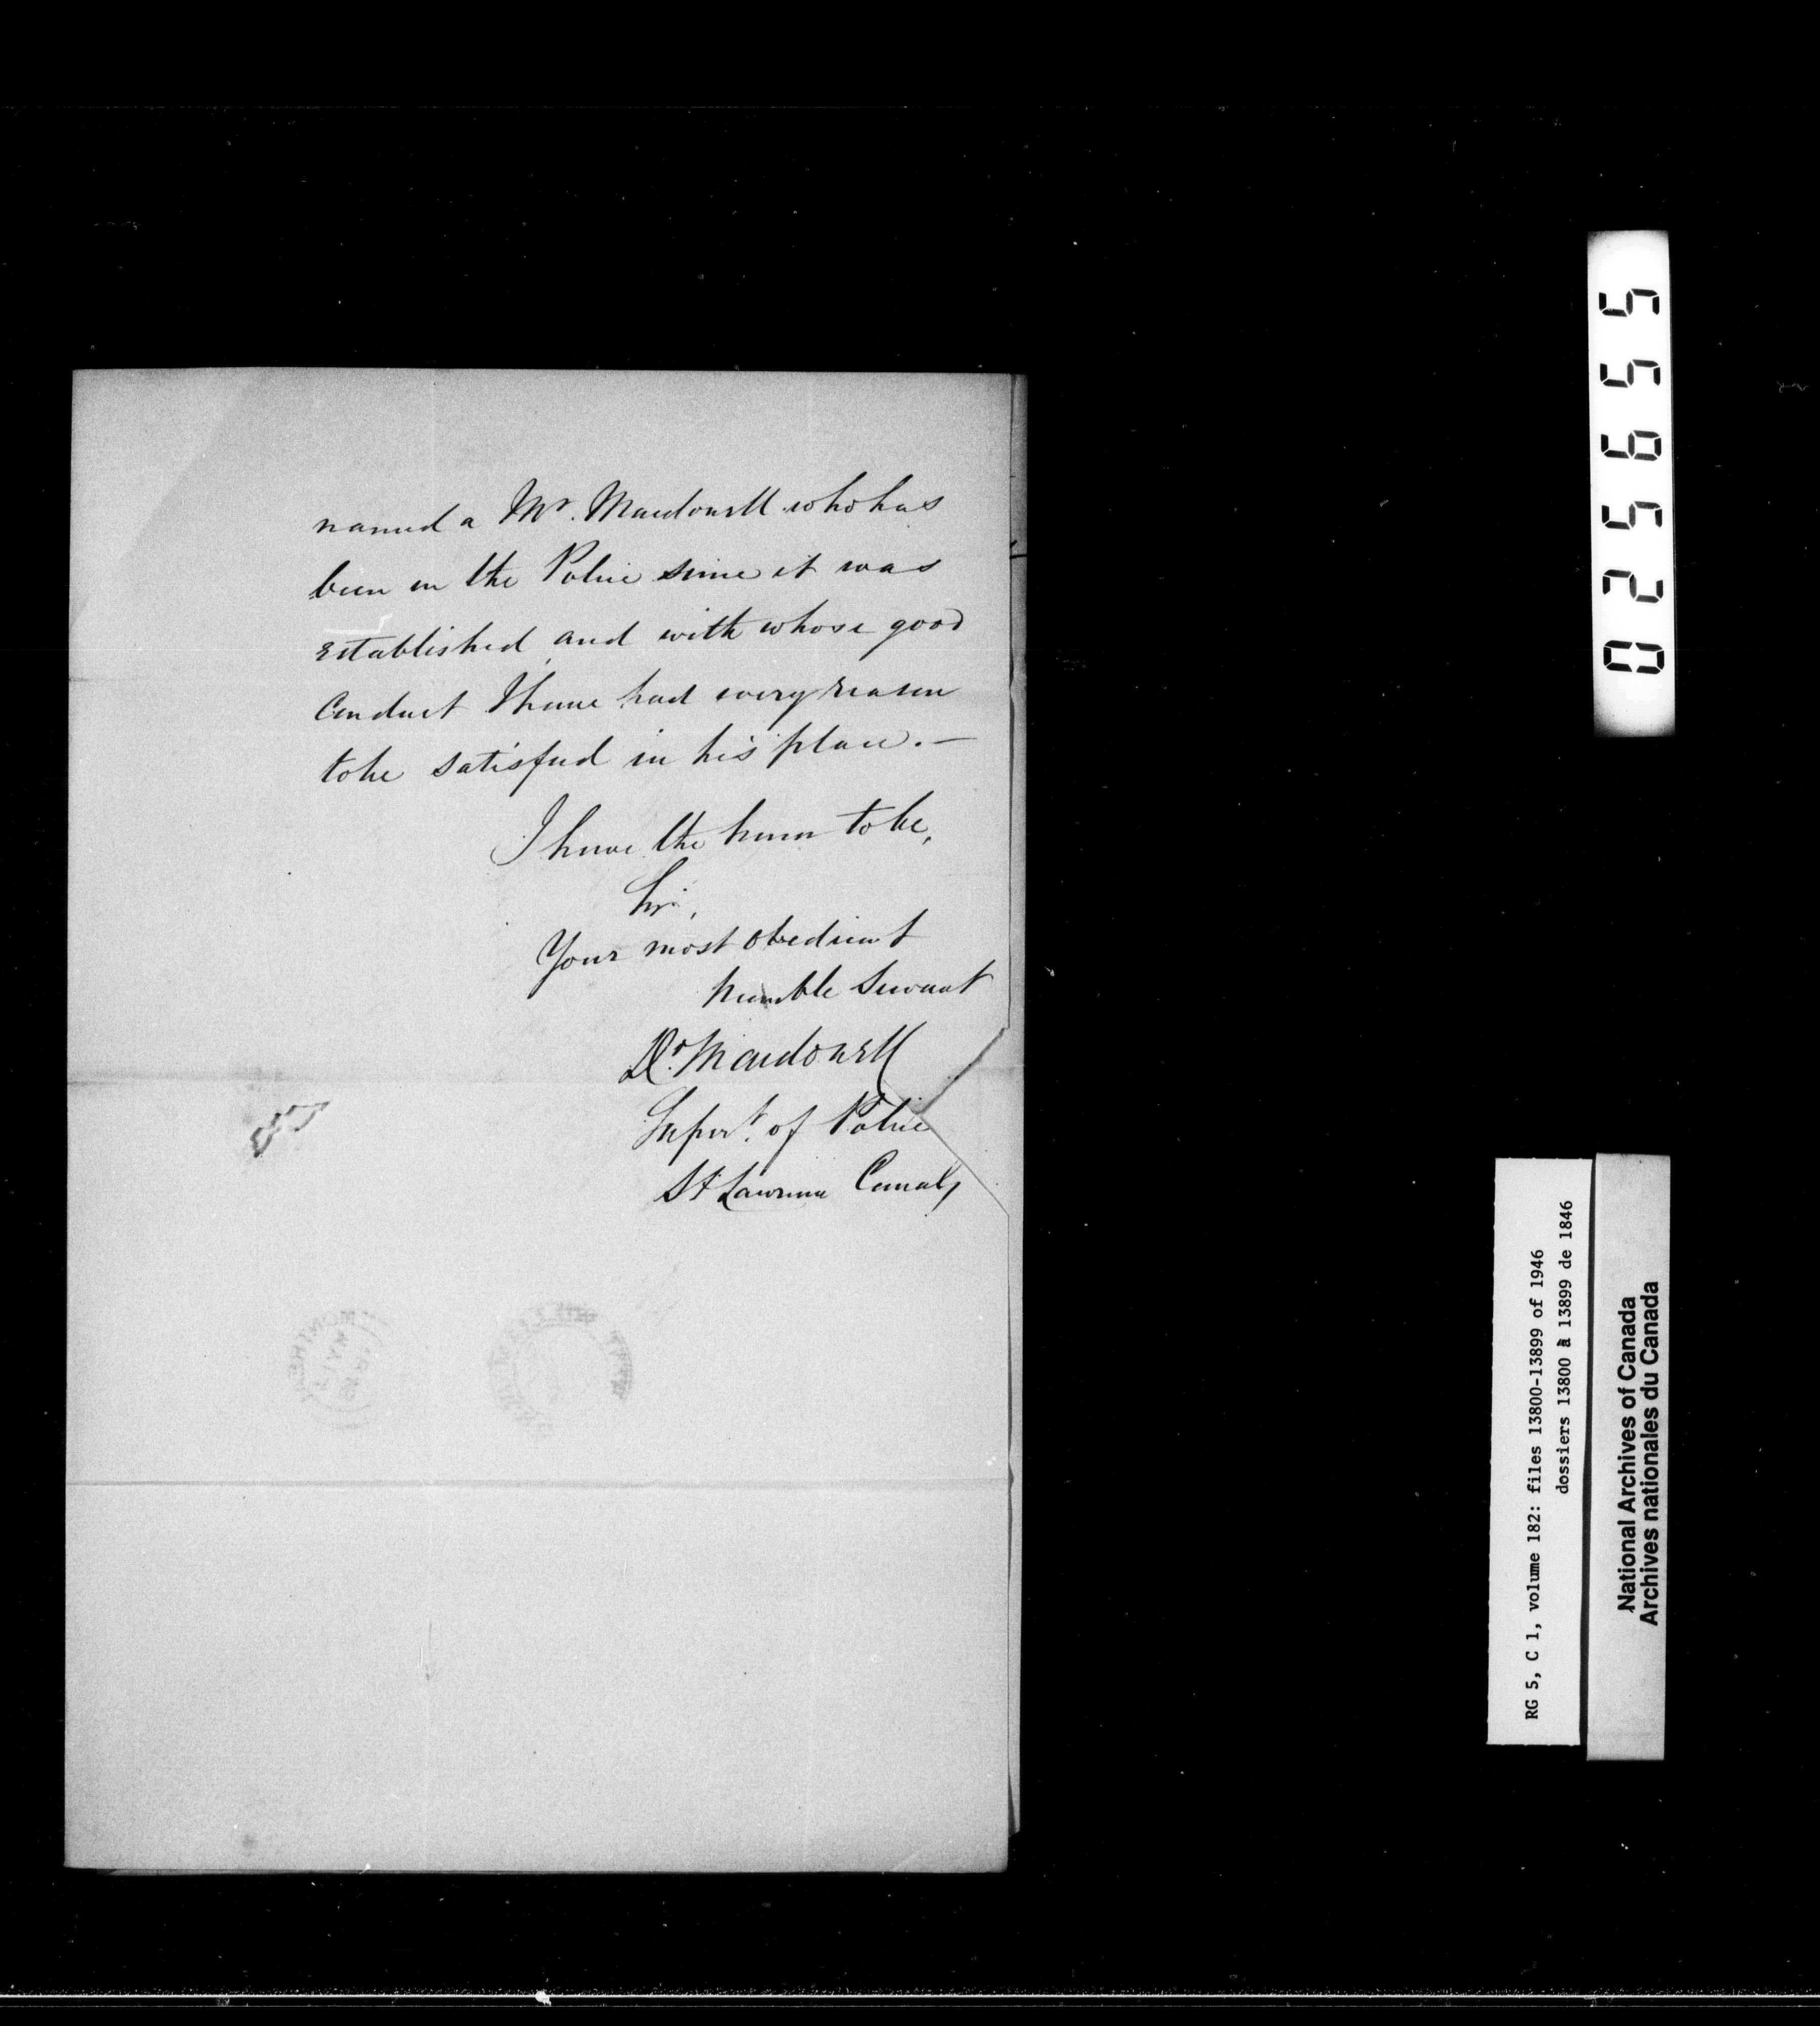 named a Mr. Macdonell who has
been in the Police since it was
established and with whose good
Conduct I have had every reason
to be satisfied in his place. —
I have the honor to be,
Sir,
Your most obedient
humble Servant
Macdonell
Supert. of Police
St Lawrence Canals
025655
RG 5, C 1, volume 182: files 13800-13899 of 1946
dossiers 13800 à 13899 de 1846
National Archives of Canada
Archives nationales du Canada